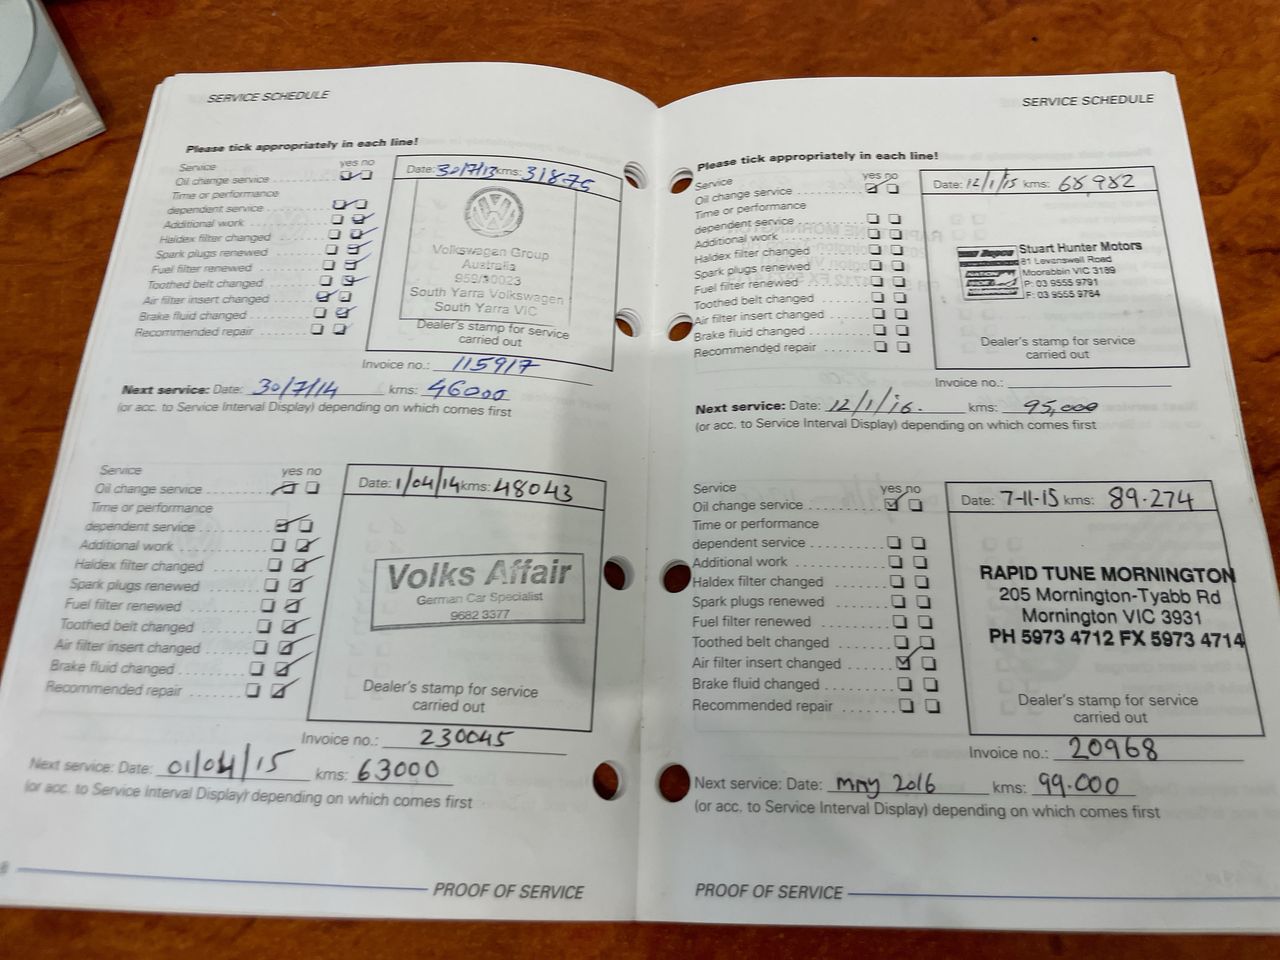 SERVICE SCHEDULE
Please tick appropriately in each line!
Service yes no
Oil change service
Time or performance
dependent service
Additional work
Haldex filter changed
Spark plugs renewed
Fuel filter renewed
Toothed belt changed
Air filter insert changed
Brake fluid changed
Recommended repair
Date: 30/7/13 kms: 31875
Volkswagen Group
Australia
950/30023
South Yarra Volkswagen
South Yarra VIC
Dealer's stamp for service
carried out
Invoice no.: 115917
Next service: Date: 30/7/14 kms: 46000
(or acc. to Service Interval Display) depending on which comes first
Service yes no
Oil change service
Time or performance
dependent service
Additional work
Haldex filter changed
Spark plugs renewed
Fuel filter renewed
Toothed belt changed
Air filter insert changed
Brake fluid changed
Recommended repair
Date: 1/04/14 kms: 48043
Volks Affair
German Car Specialist
9682 3377
Dealer's stamp for service
carried out
Invoice no.: 230045
Next service: Date: 01/04/15 kms: 63000
(or acc. to Service Interval Display) depending on which comes first
PROOF OF SERVICE
SERVICE SCHEDULE
Please tick appropriately in each line!
Service yes no
Oil change service
Time or performance
dependent service
Additional work
Haldex filter changed
Spark plugs renewed
Fuel filter renewed
Toothed belt changed
Air filter insert changed
Brake fluid changed
Recommended repair
Date: 12/1/15 kms: 68982
Stuart Hunter Motors
81 Levanswell Road
Moorabbin VIC 3189
P: 03 9555 9791
F: 03 9555 9784
Dealer's stamp for service
carried out
Invoice no.:
Next service: Date: 12/1/16. kms: 95,000
(or acc. to Service Interval Display) depending on which comes first
Service yes no
Oil change service
Time or performance
dependent service
Additional work
Haldex filter changed
Spark plugs renewed
Fuel filter renewed
Toothed belt changed
Air filter insert changed
Brake fluid changed
Recommended repair
Date: 7-11-15 kms: 89.274
RAPID TUNE MORNINGTON
205 Mornington-Tyabb Rd
Mornington VIC 3931
PH 5973 4712 FX 5973 4714
Dealer's stamp for service
carried out
Invoice no.: 20968
Next service: Date: may 2016 kms: 99.000
(or acc. to Service Interval Display) depending on which comes first
PROOF OF SERVICE